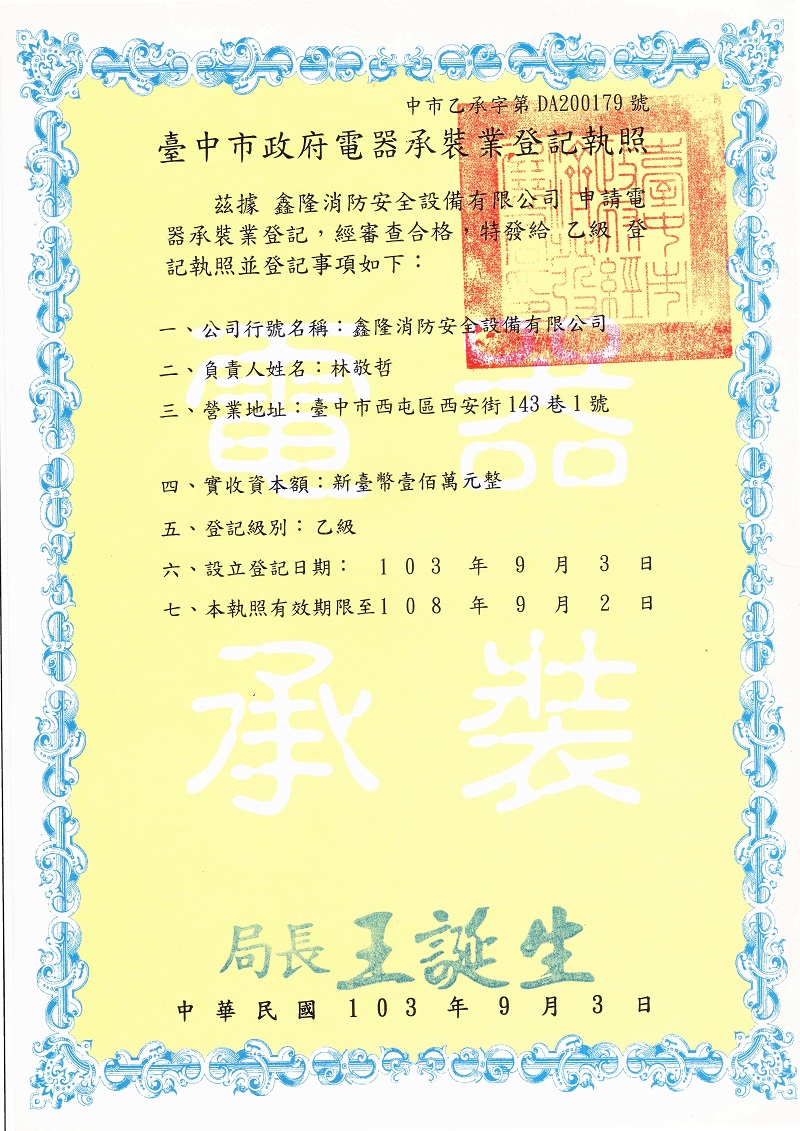 中市乙承字第 DA200179 號
臺中市政府電器承裝業登記執照
茲據 鑫隆消防安全設備有限公司 申請電
器承裝業登記,經審查合格,特發給 乙級 登
記執照並登記事項如下:
一、公司行號名稱:鑫隆消防安全設備有限公司
二、負責人姓名:林敬哲
三、營業地址:臺中市西屯區西安街 143 巷 1 號
四、實收資本額:新臺幣壹佰萬元整
五、登記級別:乙級
六、設立登記日期: 1 0 3 年 9 月 3 日
七、本執照有效期限至1 0 8 年 9 月 2 日
電器
承裝
局長王誕生
中華民國 1 0 3 年 9 月 3 日